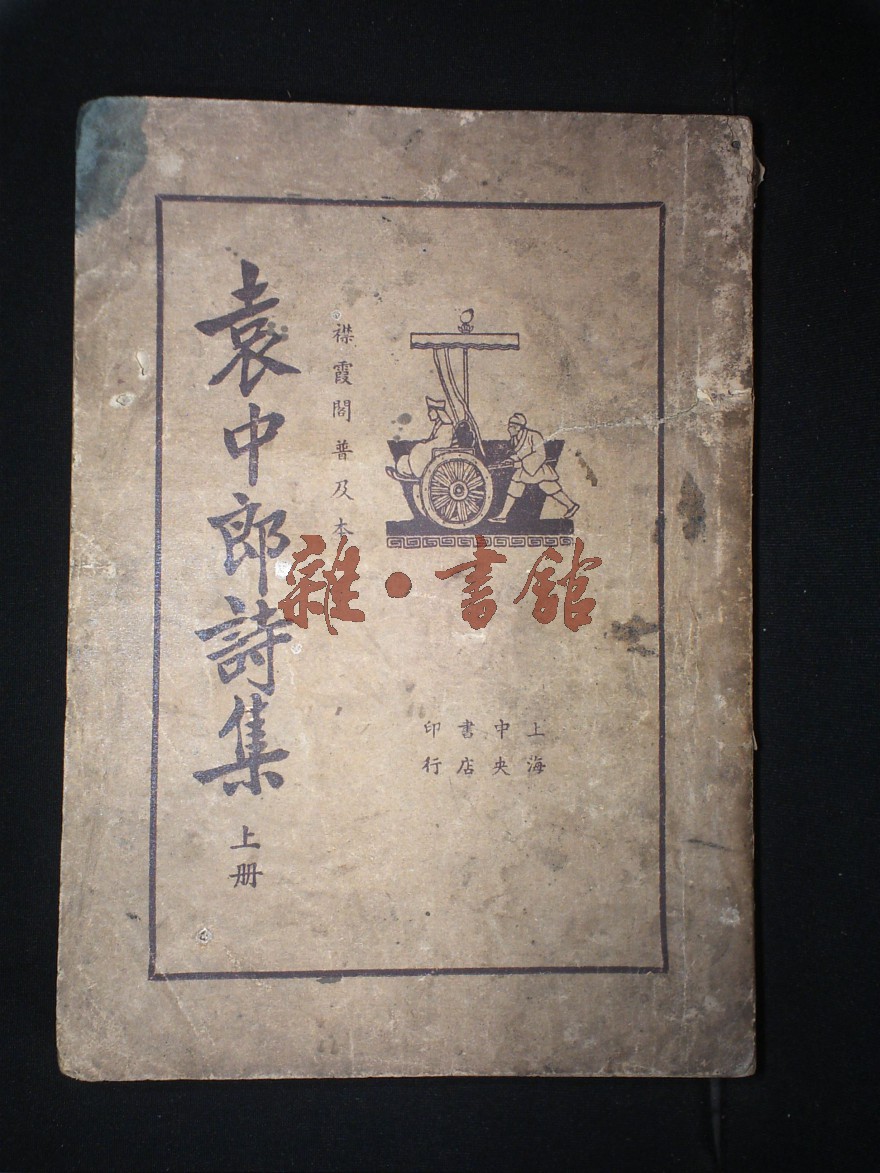 袁中郎詩集
上册
襟霞閣普及本
上海
中央
書店
印行
雜·書館